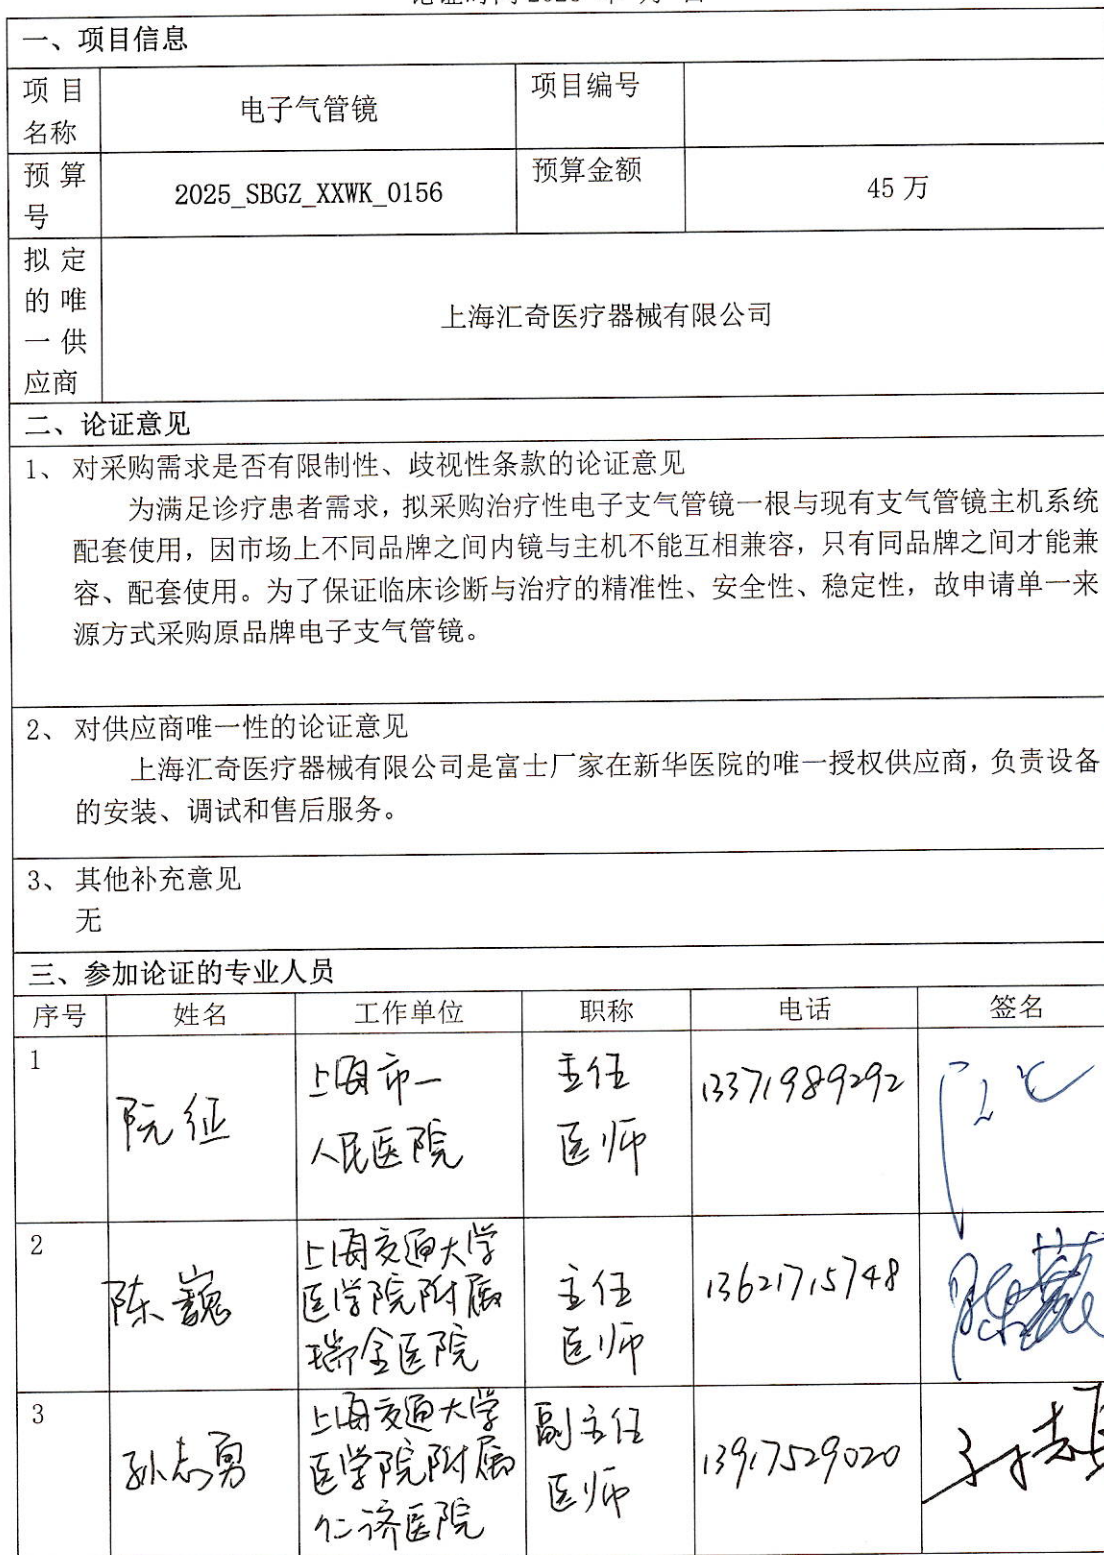 一、项目信息
项目名称
电子气管镜
项目编号
预算号
2025_SBGZ_XXWK_0156
预算金额
45 万
拟定的唯一供应商
上海汇奇医疗器械有限公司
二、论证意见
1、 对采购需求是否有限制性、歧视性条款的论证意见
为满足诊疗患者需求，拟采购治疗性电子支气管镜一根与现有支气管镜主机系统
配套使用，因市场上不同品牌之间内镜与主机不能互相兼容，只有同品牌之间才能兼
容、配套使用。为了保证临床诊断与治疗的精准性、安全性、稳定性，故申请单一来
源方式采购原品牌电子支气管镜。
2、 对供应商唯一性的论证意见
上海汇奇医疗器械有限公司是富士厂家在新华医院的唯一授权供应商，负责设备
的安装、调试和售后服务。
3、 其他补充意见
无
三、参加论证的专业人员
序号 姓名 工作单位 职称 电话 签名
1
阮征
上海市一
人民医院
主任
医师
13371989292
2
陈巍
上海交通大学
医学院附属
瑞金医院
主任
医师
13621715748
3
孙志勇
上海交通大学
医学院附属
仁济医院
副主任
医师
13917529020